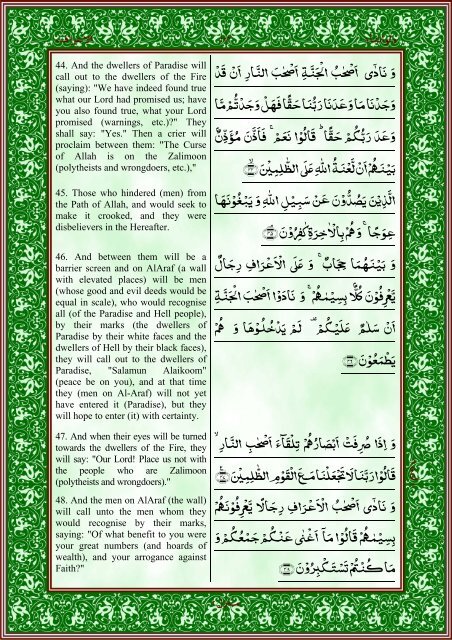 44. And the dwellers of Paradise will
call out to the dwellers of the Fire
(saying): "We have indeed found true
what our Lord had promised us; have
you also found true, what your Lord
promised (warnings, etc.)?" They
shall say: "Yes." Then a crier will
proclaim between them: "The Curse
of Allah is on the Zalimoon
(polytheists and wrongdoers, etc.),"
45. Those who hindered (men) from
the Path of Allah, and would seek to
make it crooked, and they were
disbelievers in the Hereafter.
46. And between them will be a
barrier screen and on AlAraf (a wall
with elevated places) will be men
(whose good and evil deeds would be
equal in scale), who would recognise
all (of the Paradise and Hell people),
by their marks (the dwellers of
Paradise by their white faces and the
dwellers of Hell by their black faces),
they will call out to the dwellers of
Paradise, "Salamun Alaikoom"
(peace be on you), and at that time
they (men on Al-Araf) will not yet
have entered it (Paradise), but they
will hope to enter (it) with certainty.
47. And when their eyes will be turned
towards the dwellers of the Fire, they
will say: "Our Lord! Place us not with
the people who are Zalimoon
(polytheists and wrongdoers)."
48. And the men on AlAraf (the wall)
will call unto the men whom they
would recognise by their marks,
saying: "Of what benefit to you were
your great numbers (and hoards of
wealth), and your arrogance against
Faith?"
وَ نَادٰۤى اَصْحٰبُ الْجَنَّةِ اَصْحٰبَ النَّارِ اَنْ قَدْ
وَجَدْنَا مَا وَعَدَنَا رَبُّنَا حَقًّا فَهَلْ وَجَدْتُّمْ مَّا
وَعَدَ رَبُّكُمْ حَقًّا ؕ قَالُوْا نَعَمْ ۚ فَاَذَّنَ مُؤَذِّنٌۢ
بَيْنَهُمْ اَنْ لَّعْنَةُ اللّٰهِ عَلَى الظّٰلِمِيْنَ ۙ﴿۴۴﴾
الَّذِيْنَ يَصُدُّوْنَ عَنْ سَبِيْلِ اللّٰهِ وَ يَبْغُوْنَهَا
عِوَجًا ۚ وَ هُمْ بِالْاٰخِرَةِ كٰفِرُوْنَ ﴿۴۵﴾
وَ بَيْنَهُمَا حِجَابٌ ۚ وَ عَلَى الْاَعْرَافِ رِجَالٌ
يَّعْرِفُوْنَ كُلًّۢا بِسِيْمٰىهُمْ ۚ وَ نَادَوْا اَصْحٰبَ الْجَنَّةِ
اَنْ سَلٰمٌ عَلَيْكُمْ ۟ لَمْ يَدْخُلُوْهَا وَ هُمْ
يَطْمَعُوْنَ ﴿۴۶﴾
وَ اِذَا صُرِفَتْ اَبْصَارُهُمْ تِلْقَآءَ اَصْحٰبِ النَّارِ ۙ
قَالُوْا رَبَّنَا لَا تَجْعَلْنَا مَعَ الْقَوْمِ الظّٰلِمِيْنَ ﴿۴۷﴾
وَ نَادٰۤى اَصْحٰبُ الْاَعْرَافِ رِجَالًا يَّعْرِفُوْنَهُمْ
بِسِيْمٰىهُمْ قَالُوْا مَاۤ اَغْنٰى عَنْكُمْ جَمْعُكُمْ وَ
مَا كُنْتُمْ تَسْتَكْبِرُوْنَ ﴿۴۸﴾